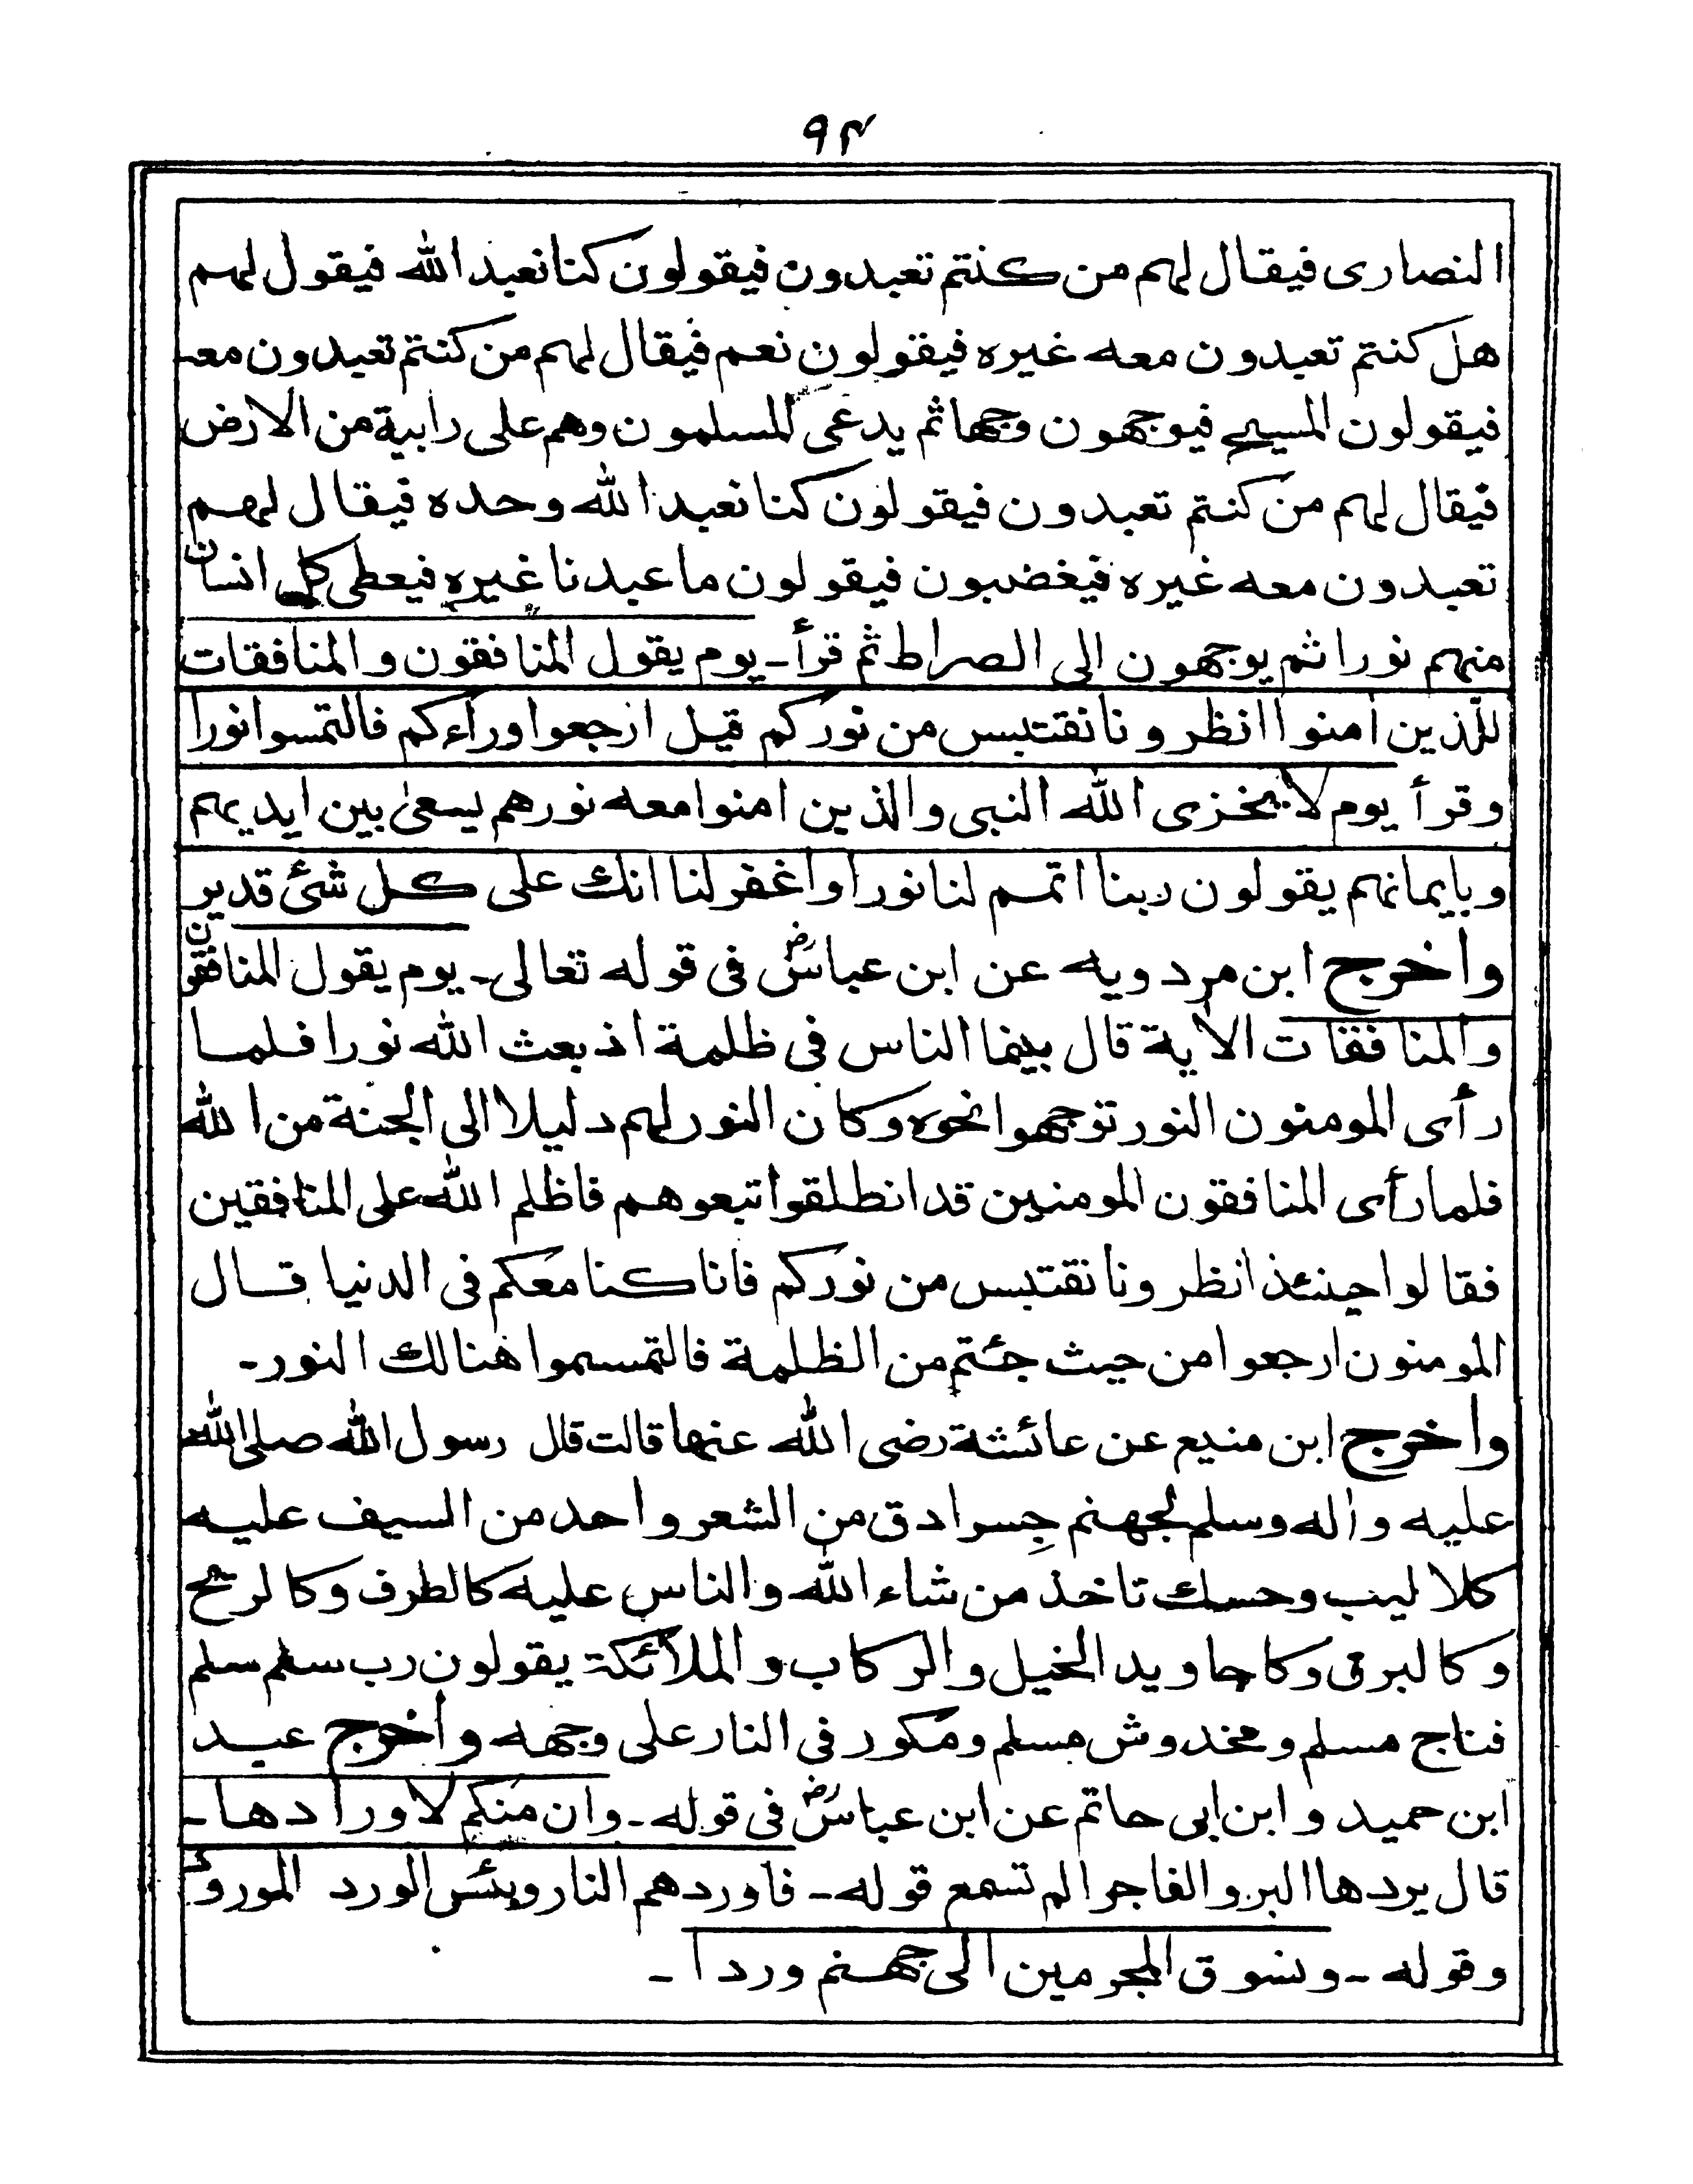 ۹۴
النصاری فیقال لہم من کنتم تعبدون فیقولون کنا نعبد الله فیقول لہم
ھل کنتم تعبدون معه غیرہ فیقولون نعم فیقال لہم من کنتم تعبدون معه
فیقولون المسیح فیوجہون وجہا ثم یدعی المسلمون وھم علی رابیة من الارض
فیقال لہم من کنتم تعبدون فیقولون کنا نعبد الله وحدہ فیقال لہم
تعبدون معه غیرہ فیغضبون فیقولون ما عبدنا غیرہ فیعطی کل انسان
منہم نورا ثم یوجہون الی الصراط ثم قرأ۔ یوم یقول المنافقون والمنافقات
للّذین اٰمنوا انظرونا نقتبس من نورکم قیل ارجعوا وراءکم فالتمسوا نورا
وقرأ یوم لا یخزی الله النبی والذین امنوا معه نورھم یسعیٰ بین ایدیہم
وبایمانہم یقولون ربنا اتمم لنا نورا واغفر لنا انك علی کل شئ قدیر
واخرج ابن مردویه عن ابن عباسؓ فی قوله تعالی۔ یوم یقول المنافقون
والمنافقات الاٰیة قال بینما الناس فی ظلمة اذ بعث الله نورا فلما
رأی المومنون النور توجہوا نحوہ وکان النور لہم دلیلا الی الجنة من الله
فلما رأی المنافقون المومنین قد انطلقوا تبعوھم فاظلم الله علی المنافقین
فقالوا حینئذ انظرونا نقتبس من نورکم فانا کنا معکم فی الدنیا قال
المومنون ارجعوا من حیث جئتم من الظلمة فالتمسوا ھنالك النور۔
واخرج ابن منیع عن عائشة رضی الله عنہا قالت قال رسول الله صلی الله
علیه واٰله وسلم لجہنم جِسر ادق من الشعر واحد من السیف علیه
کلالیب وحسك تاخذ من شاء الله والناس علیه کالطرف وکالریح
وکالبرق وکاجاوید الخیل والرکاب والملائکة یقولون رب سلم سلم
فناج مسلم ومخدوش مسلم ومکور فی النار علی وجہه واخرج عبد
ابن حمید وابن ابی حاتم عن ابن عباسؓ فی قوله۔ وان منکم لا واردھا۔
قال یردھا البر والفاجر الم تسمع قوله۔ فاوردھم النار وبئس الورد المورود
وقوله۔ ونسوق المجرمین الی جہنم وردا۔